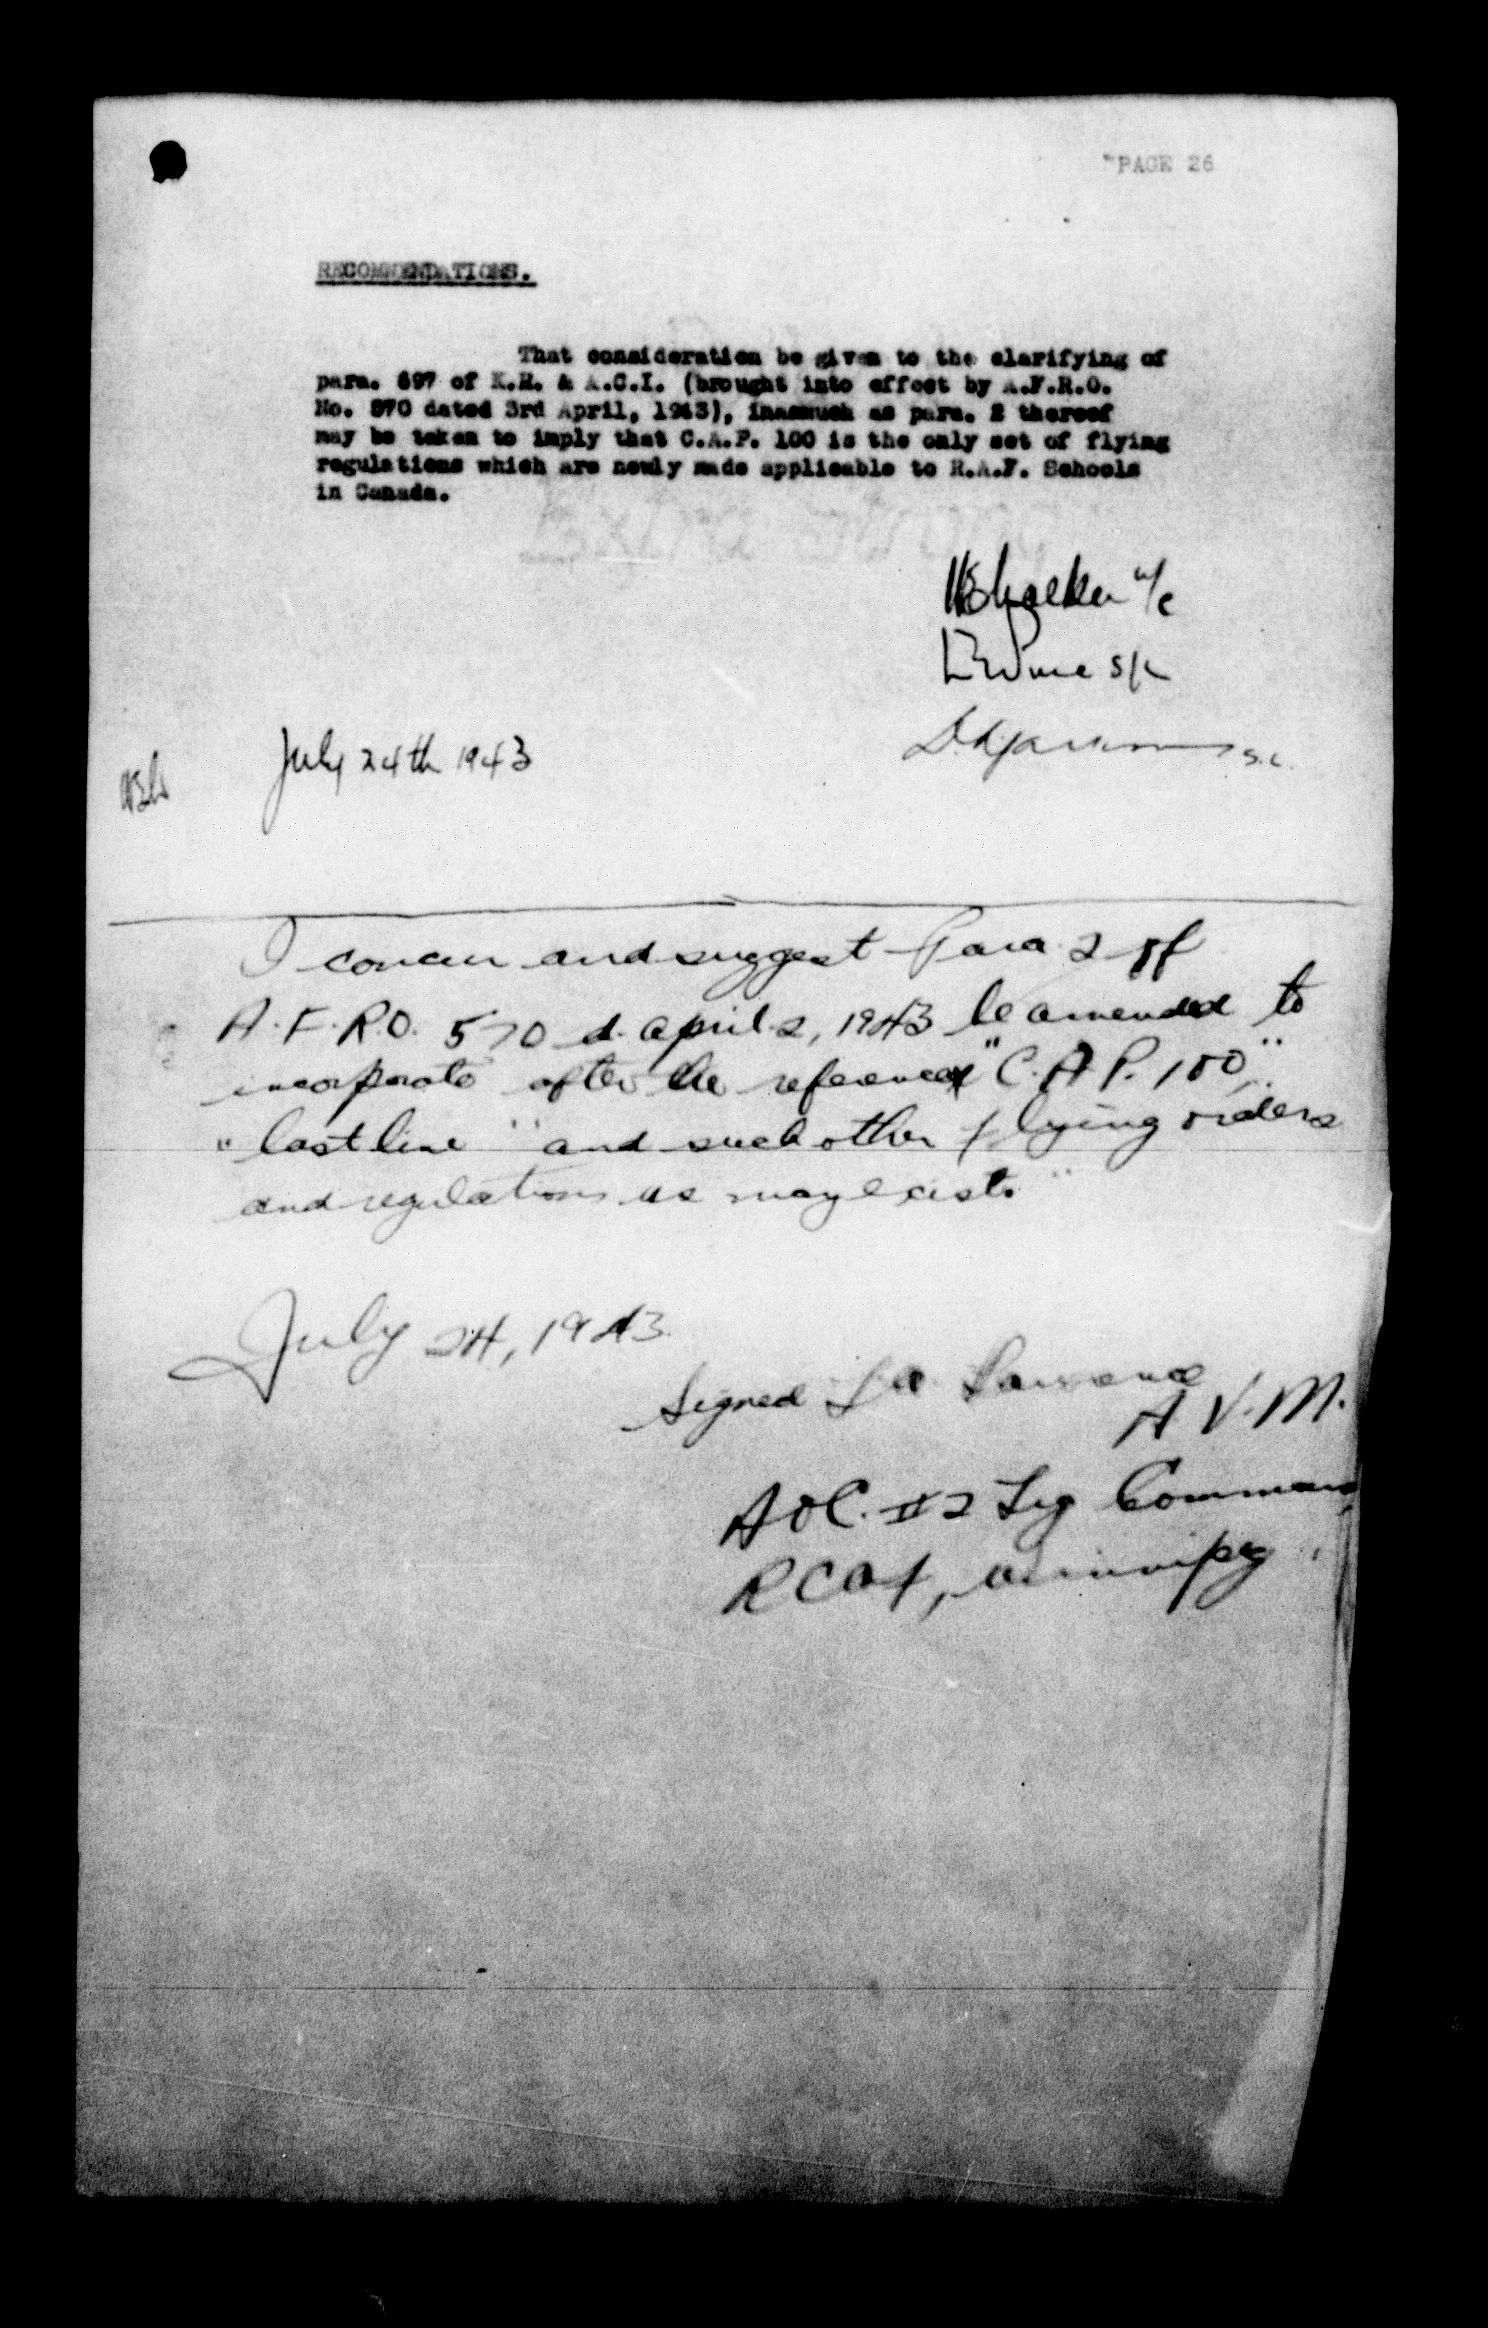 PAGE 26
RECOMMENDATIONS.
That consideration be given to the clarifying of
para. 697 of K.R. & A.C.I. (brought into effect by A.F.R.O.
No. 570 dated 3rd April, 1943), inasmuch as para. 2 thereof
may be taken to imply that C.A.P. 100 is the only set of flying
regulations which are newly made applicable to R.A.F. Schools
in Canada.
W/C
S/L
July 24th 1943
S.L.
I concur and suggest Para 2 of
A.F.R.O. 570 d. April 2, 1943 be amended to
incorporate after the reference "C.A.P. 100"
"last line" "and such other flying orders
and regulations as may exist."
July 24, 1943
Signed Lawrence
A.V.M.
AOC. #2 Trg Command
RCAF, Winnipeg